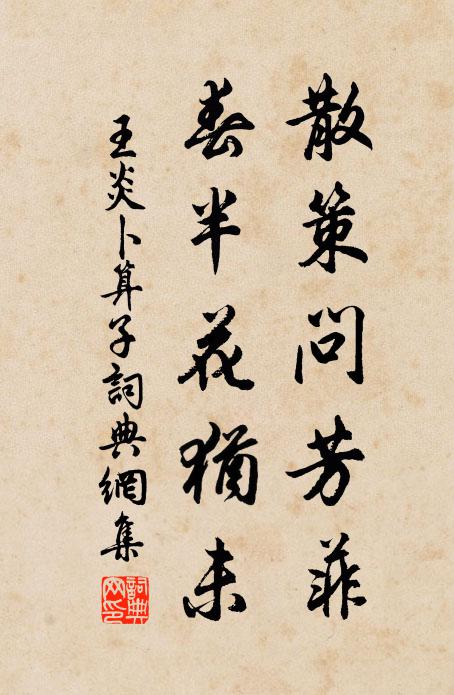 散策問芳菲
春半花猶未
王炎卜算子詞典網集
詞典網印